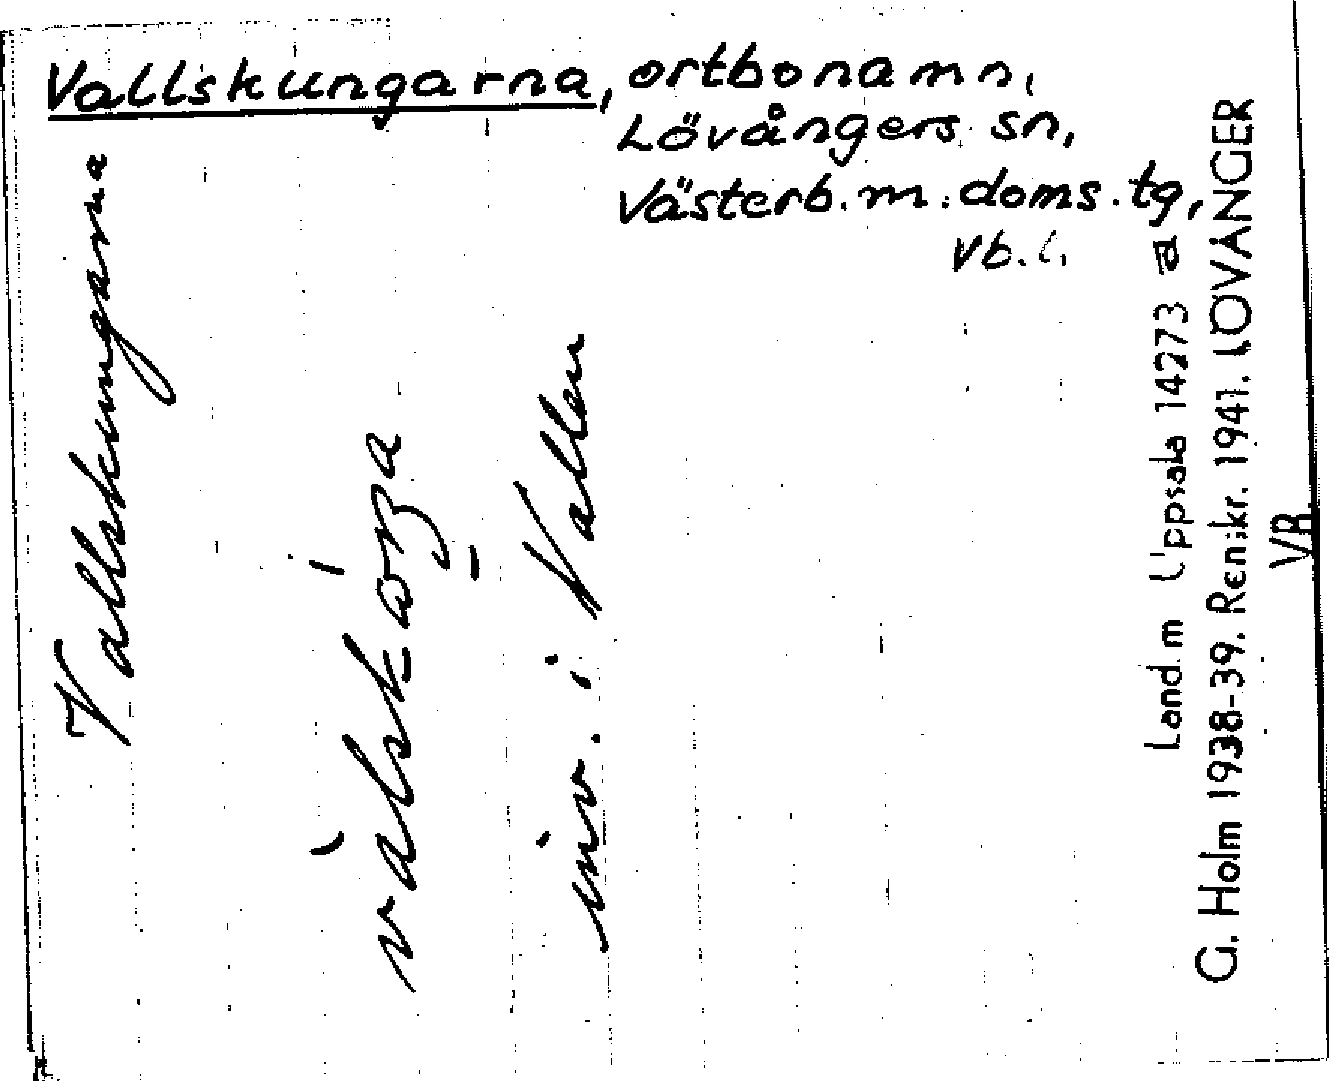 Vallskungarna, ortbonamn,
Lövångers sn,
Västerb. m. doms. tg,
Vb. l.
Vallskungarna
inv. i Vallen
Landsm Uppsala 14273
G. Holm 1938-39. Renskr. 1941. LÖVÅNGER
VB